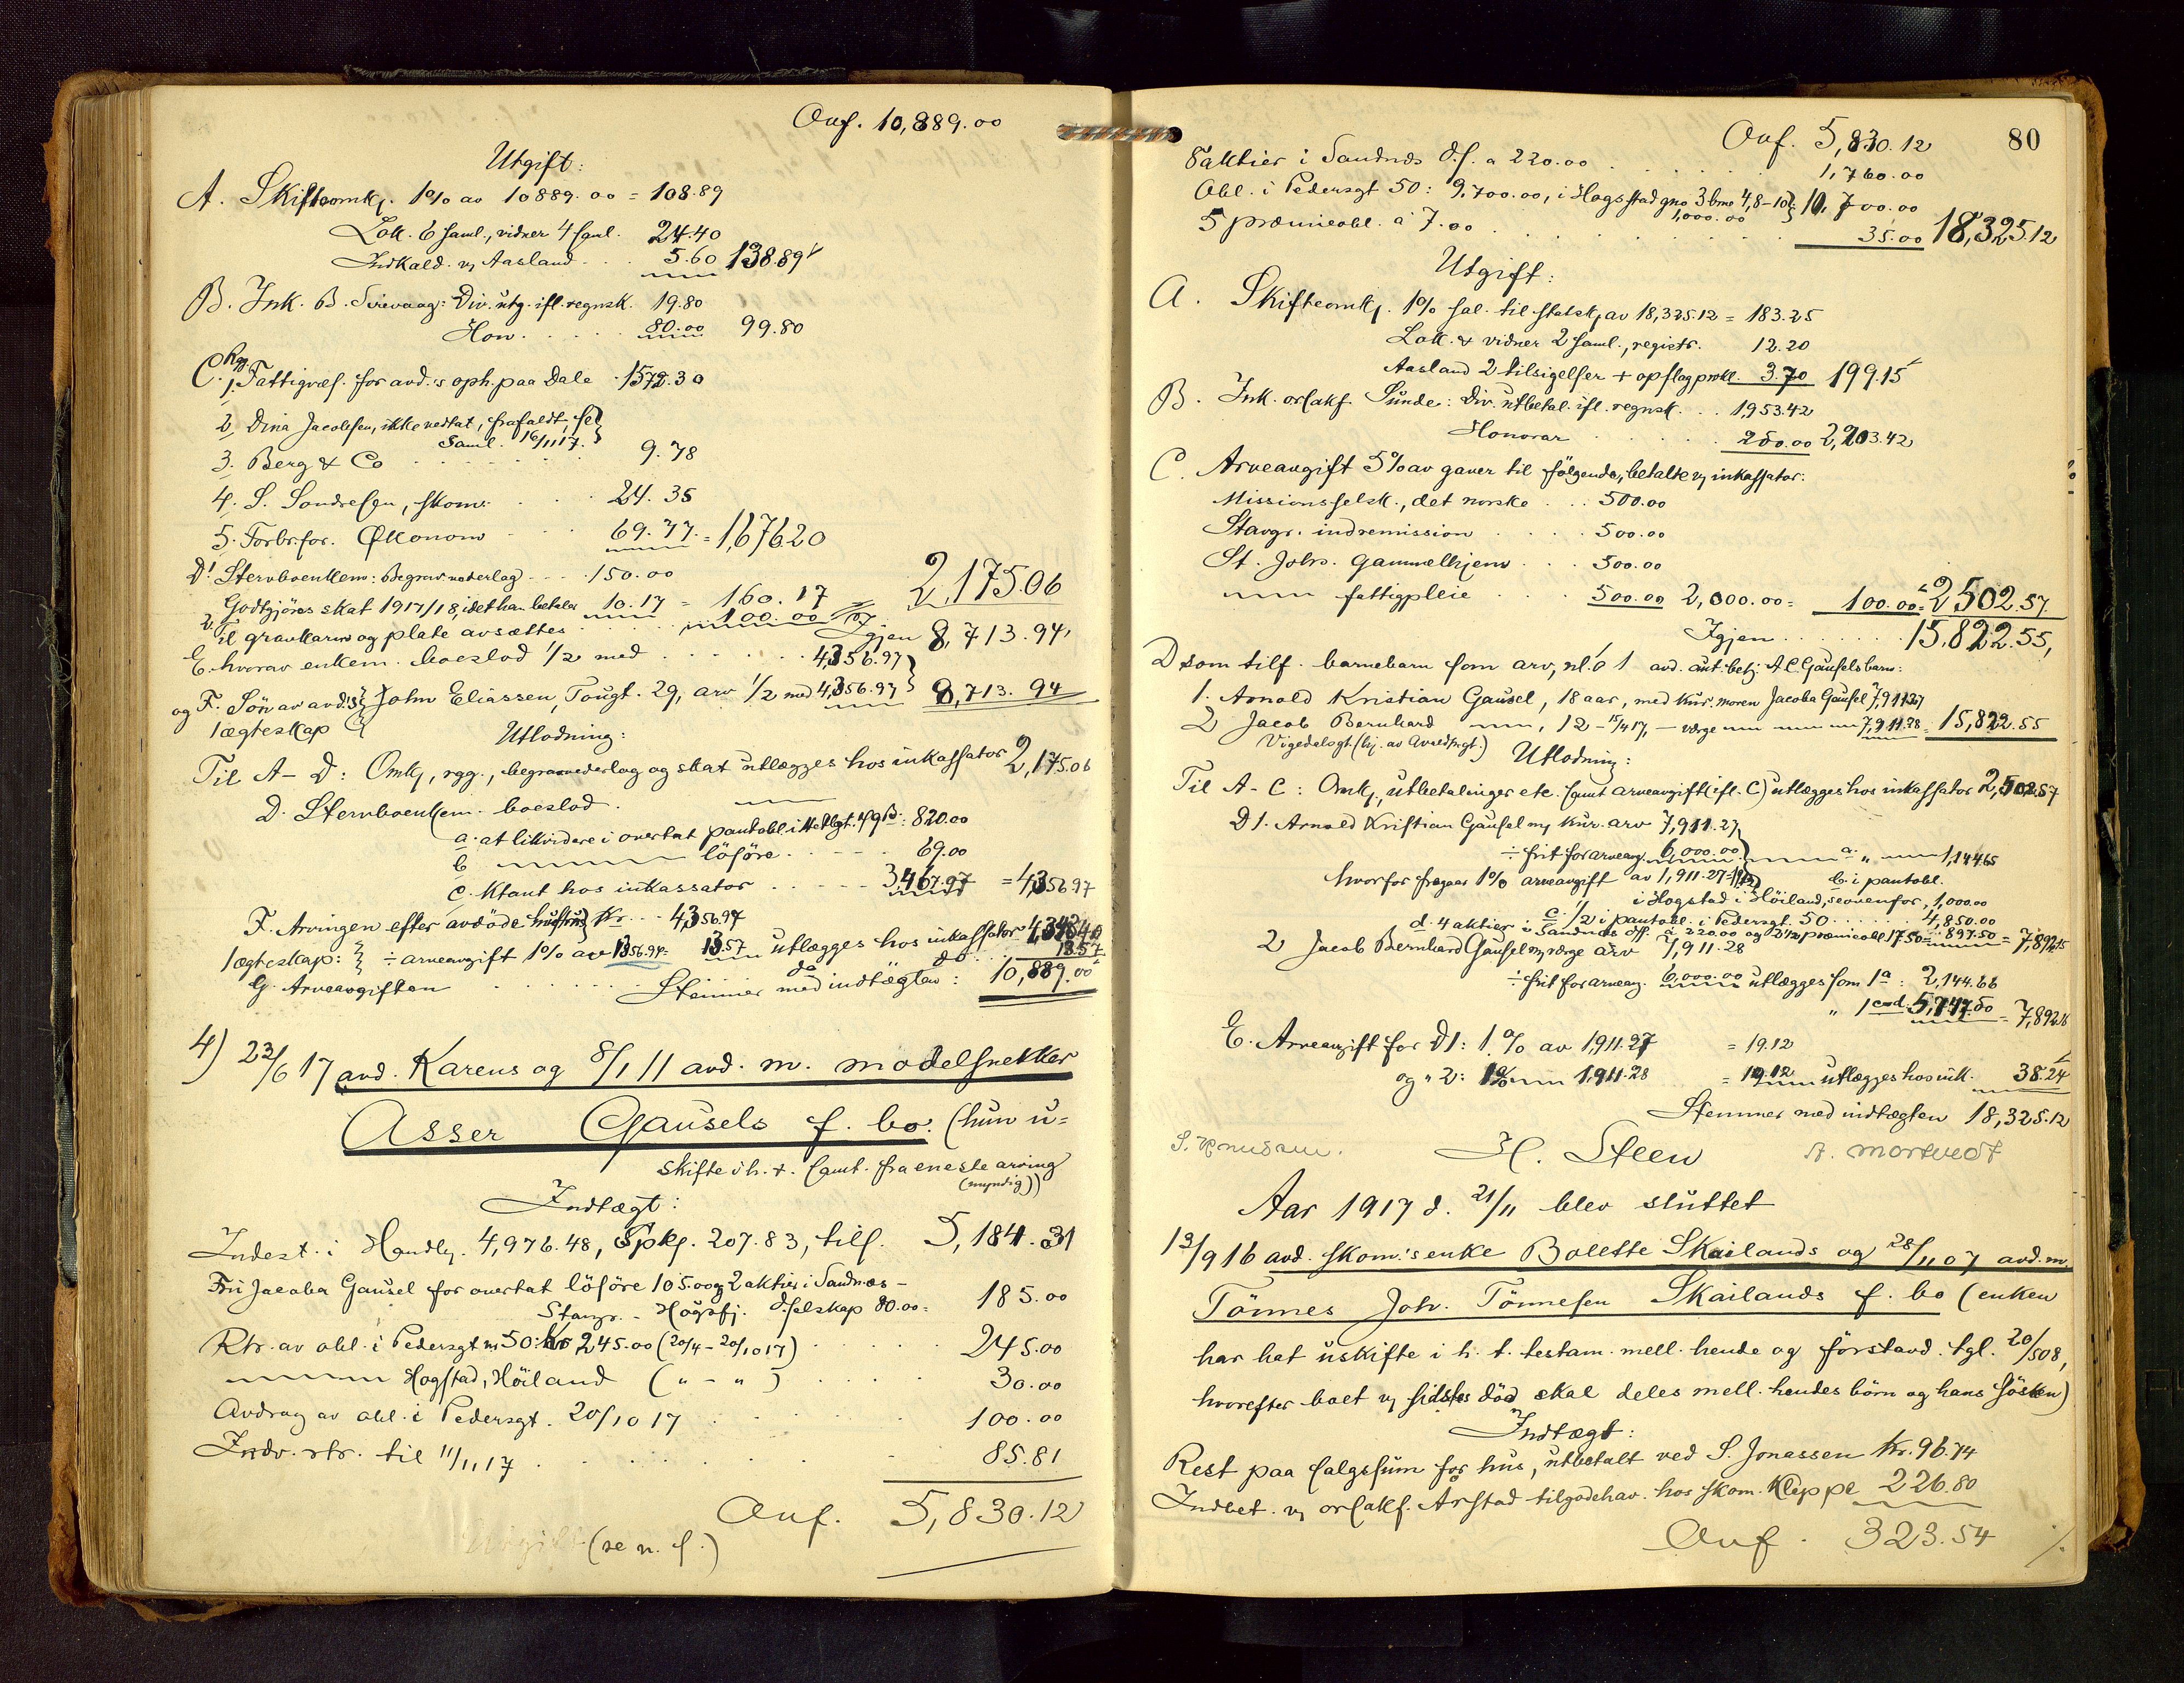 Ovf. 10,889.00
Utgift:
A. Skifteomk. 1% av 10889.00 = 108.89
Lok. 6 saml., vidner 4 saml. 24.40
Indkald. v Aasland . . 5.60 138.89
B. Ink. B. Svevaag: Div. utg. ifl. regnsk. 19.80
Hon. . . . . 80.00 99.80
C. Rgg. 1. Fattigvæs. for avd.s oph. paa Dale . 1572.30
2, Dina Jacobsen, ikke vedtat, frafaldt, se
Saml. 16/11 17.
3. Berg & Co . . . . 9.78
4. S. Sondresen, skom. . . 24.35
5. Forbr.for. Økonom . . 69.77 = 1,676.20
D1. Stervboenkem: Begrav.vederlag . . . 150.00
Godtgjøres skat 1917/18, idet han betaler 10.17 = 160.17
2. Til gravkarm og plate avsættes . . . . 100.00 2,175.06
Igjen 8,713.94,
E. hvorav enkem. boeslod 1/2 med . . . . 4,356.97
og F. Søn av avd.s John Eliassen, Tougt. 29, arv 1/2 med 4,356.97 8,713.94
1 ægteskap
Utlodning:
Til A - D: Omk, rgg., begravvederlag og skat utlægges hos inkassator 2,175.06
D. Stervboenkem. boeslod .
a. at likvidere i overtat pantobl. i Hetlgt. 49 B: 820.00
b løsøre . . . . 69.00
c. Ktant hos inkassator . . . . 3467.97 = 4,356.97
F. Arvingen efter avdøde hustrus Kr. . . 4,356.97
1 ægteskap: ÷ arveavgift 1% av 1356.97 = 13.57 utlægges hos inkassator 4,343.40
G. Arveavgiften . . . . . . do do . . . 13.57
Stemmer med indtægten : 10,889.00
4) 23/6 17 avd. Karens og 8/1 11 avd. m. modelsnekker
Asser Gausels f. bo. (hun u-
skifte i h. t. samt. fra eneste arving
(myndig))
Indtægt:
Indest. i Handlg. 4,976.48, Spk. 207.83, tils. 5,184.31
Fru Jacoba Gausel for overtat løsøre 105.00 og 2 aktier i Sandnæs -
Stavgr. - Høgsfj. d/selskap 80.00 = 185.00
Rtr. av obl. i Pedersgt nr 50: Kr 245.00 (20/4 - 20/10 17) . . . . 245.00
Hogstad, Høiland ( " - " ) . . . . 30.00
Avdrag av obl. i Pedersgt. 20/10 17 . . . . . 100.00
Indv. rtr. til 11/11 17 . . . . . . . . 85.81
Ovf. 5,830.12
Utgift (se n. s.)
80
Ovf. 5,830.12
8 aktier i Sandnæs d/s. a 220.00 . . . . . 1,760.00
Obl. i Pedersgt 50: 9,700.00, i Hogstad gno 3 bno 4,8-10: 10,700.00
1,000.00
5 præmieobl. a 7.00 . . . . . . . 35.00 18,325.12
Utgift:
A. Skifteomk. 1% sal. til statsk. av 18,325.12 = 183.25
Lok. & vidner 2 saml., registr. 12.20
Aasland 2 tilsigelser + opslag prokl. 3.70 199.15
B. Ink. o/rsakf. Sunde: Div. utbetal. ifl. regnsk. . . 1,953.42
Honorar . . . . 250.00 2,203.42
C. Arveavgift 5% av gaver til følgende, betalte v inkassator:
Missionsselsk., det norske . . . 500.00
Stavgr. indremission . . . . 500.00
St. Johs. gammelhjem . . . 500.00
fattigpleie . . . 500.00 2,000.00 = 100.00 = 2502.57
Igjen . . . . . . 15,822.55,
D som tilf. barnebarn som arv, nl. à 1 avd. aut. betj. A. C. Gausels barn:
1. Arnold Kristian Gausel, 18 aar, med kur. moren Jacoba Gausel 7,911.27
2 Jacob Bernhard , 12 - 15/4 17, - værge 7,911.28 = 15,822.55
Vigedalsgt.
Utlodning:
Til A - C: Omk., utbetalinger etc. samt arveavgift (ifl. C) utlægges hos inkassator 2,502.57
D 1. Arnold Kristian Gausel m kur. arv 7,911.27
÷ frit for arveavg. 6,000.00 a. " 1,144.65
hvorfor fragaar 1% arveavgift av 1,911.27 = 19.12 b. i pantobl.
i Hogstad i Høiland, se ovenfor, 1,000.00
c. 1/2 i pantobl. i Pedersgt. 50 . . . . . 4,850.00
d. 4 aktier i Sandnæs d/s. à 220.00 og 2 1/2 præmieobl. 17.50 = 897.50 = 7,892.15
2 Jacob Bernhard Gausel m værge arv 7,911.28
÷ frit for arveavg. 6,000.00 utlægges som 1 a: 2,144.66
" 1 c og d. 5,747.50 = 7,892.16
E. Arveavgift for D 1: 1% av 1,911.27 = 19.12
og " 2: 1% 1,911.28 = 19.12 utlægges hos ink. 38.24
Stemmer med indtægten 18,325.12
S. Knudsen. H. Steen A. Mortvedt
Aar 1917 d. 21/11 blev sluttet
13/9 16 avd. skom:s enke Bolette Skailands og 28/11 07 avd. m.
Tönnes Joh. Tönnesen Skailands f. bo (enken
har hat uskifte i h. t. testam. mell. hende og førstavd. tgl. 20/5 08,
hvorefter boet v sidstes død skal deles mell. hendes börn og hans søsken)
Indtægt:
Rest paa salgssum for hus, utbetalt ved S. Jonassen Kr. 96.74
Indbet. v o/rsakf. Arstad tilgodehav. hos skom. Kleppe 226.80
Ovf. 323.54 /.